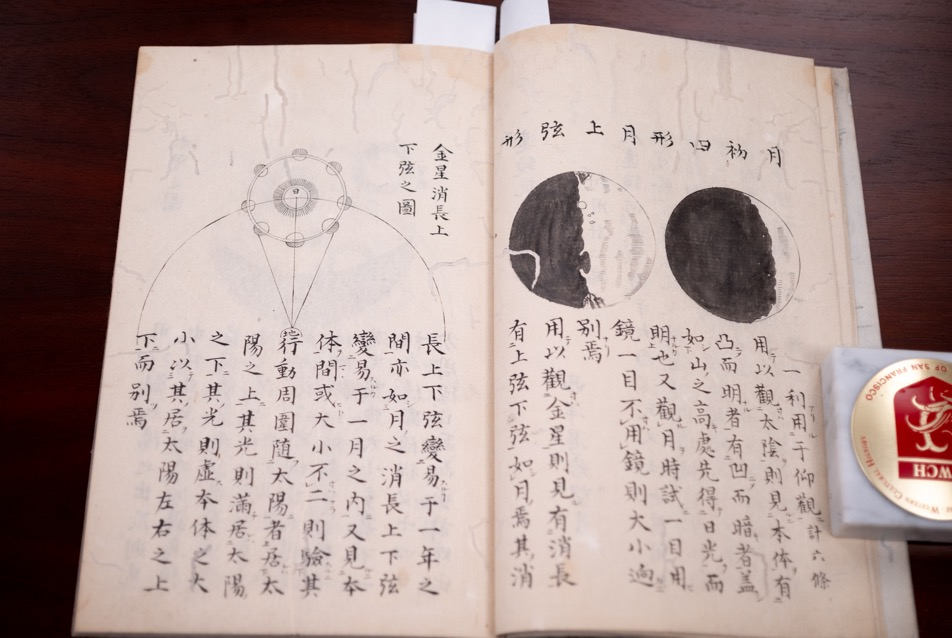 月初四形
月上弦形
一利用于仰觀計六條
用以觀太陰則見本体有
凸而明者有凹而暗者蓋
如山之高處先得日光而
明也又觀月時試一目用
鏡一目不用鏡則大小逈
別焉
用以觀金星則見有消長
有上弦下弦如月焉其消
金星消長上
下弦之圖
日
長上下弦變易于一年之
間亦如月之消長上下弦
變易于一月之内又見本
体間或大小不二則驗其
行動周圍隨太陽者居太
陽之上其光則滿居太陽
之下其光則虛本体之大
小以其居太陽左右之上
下而別焉
OF SAN FRANCISCO
WCH